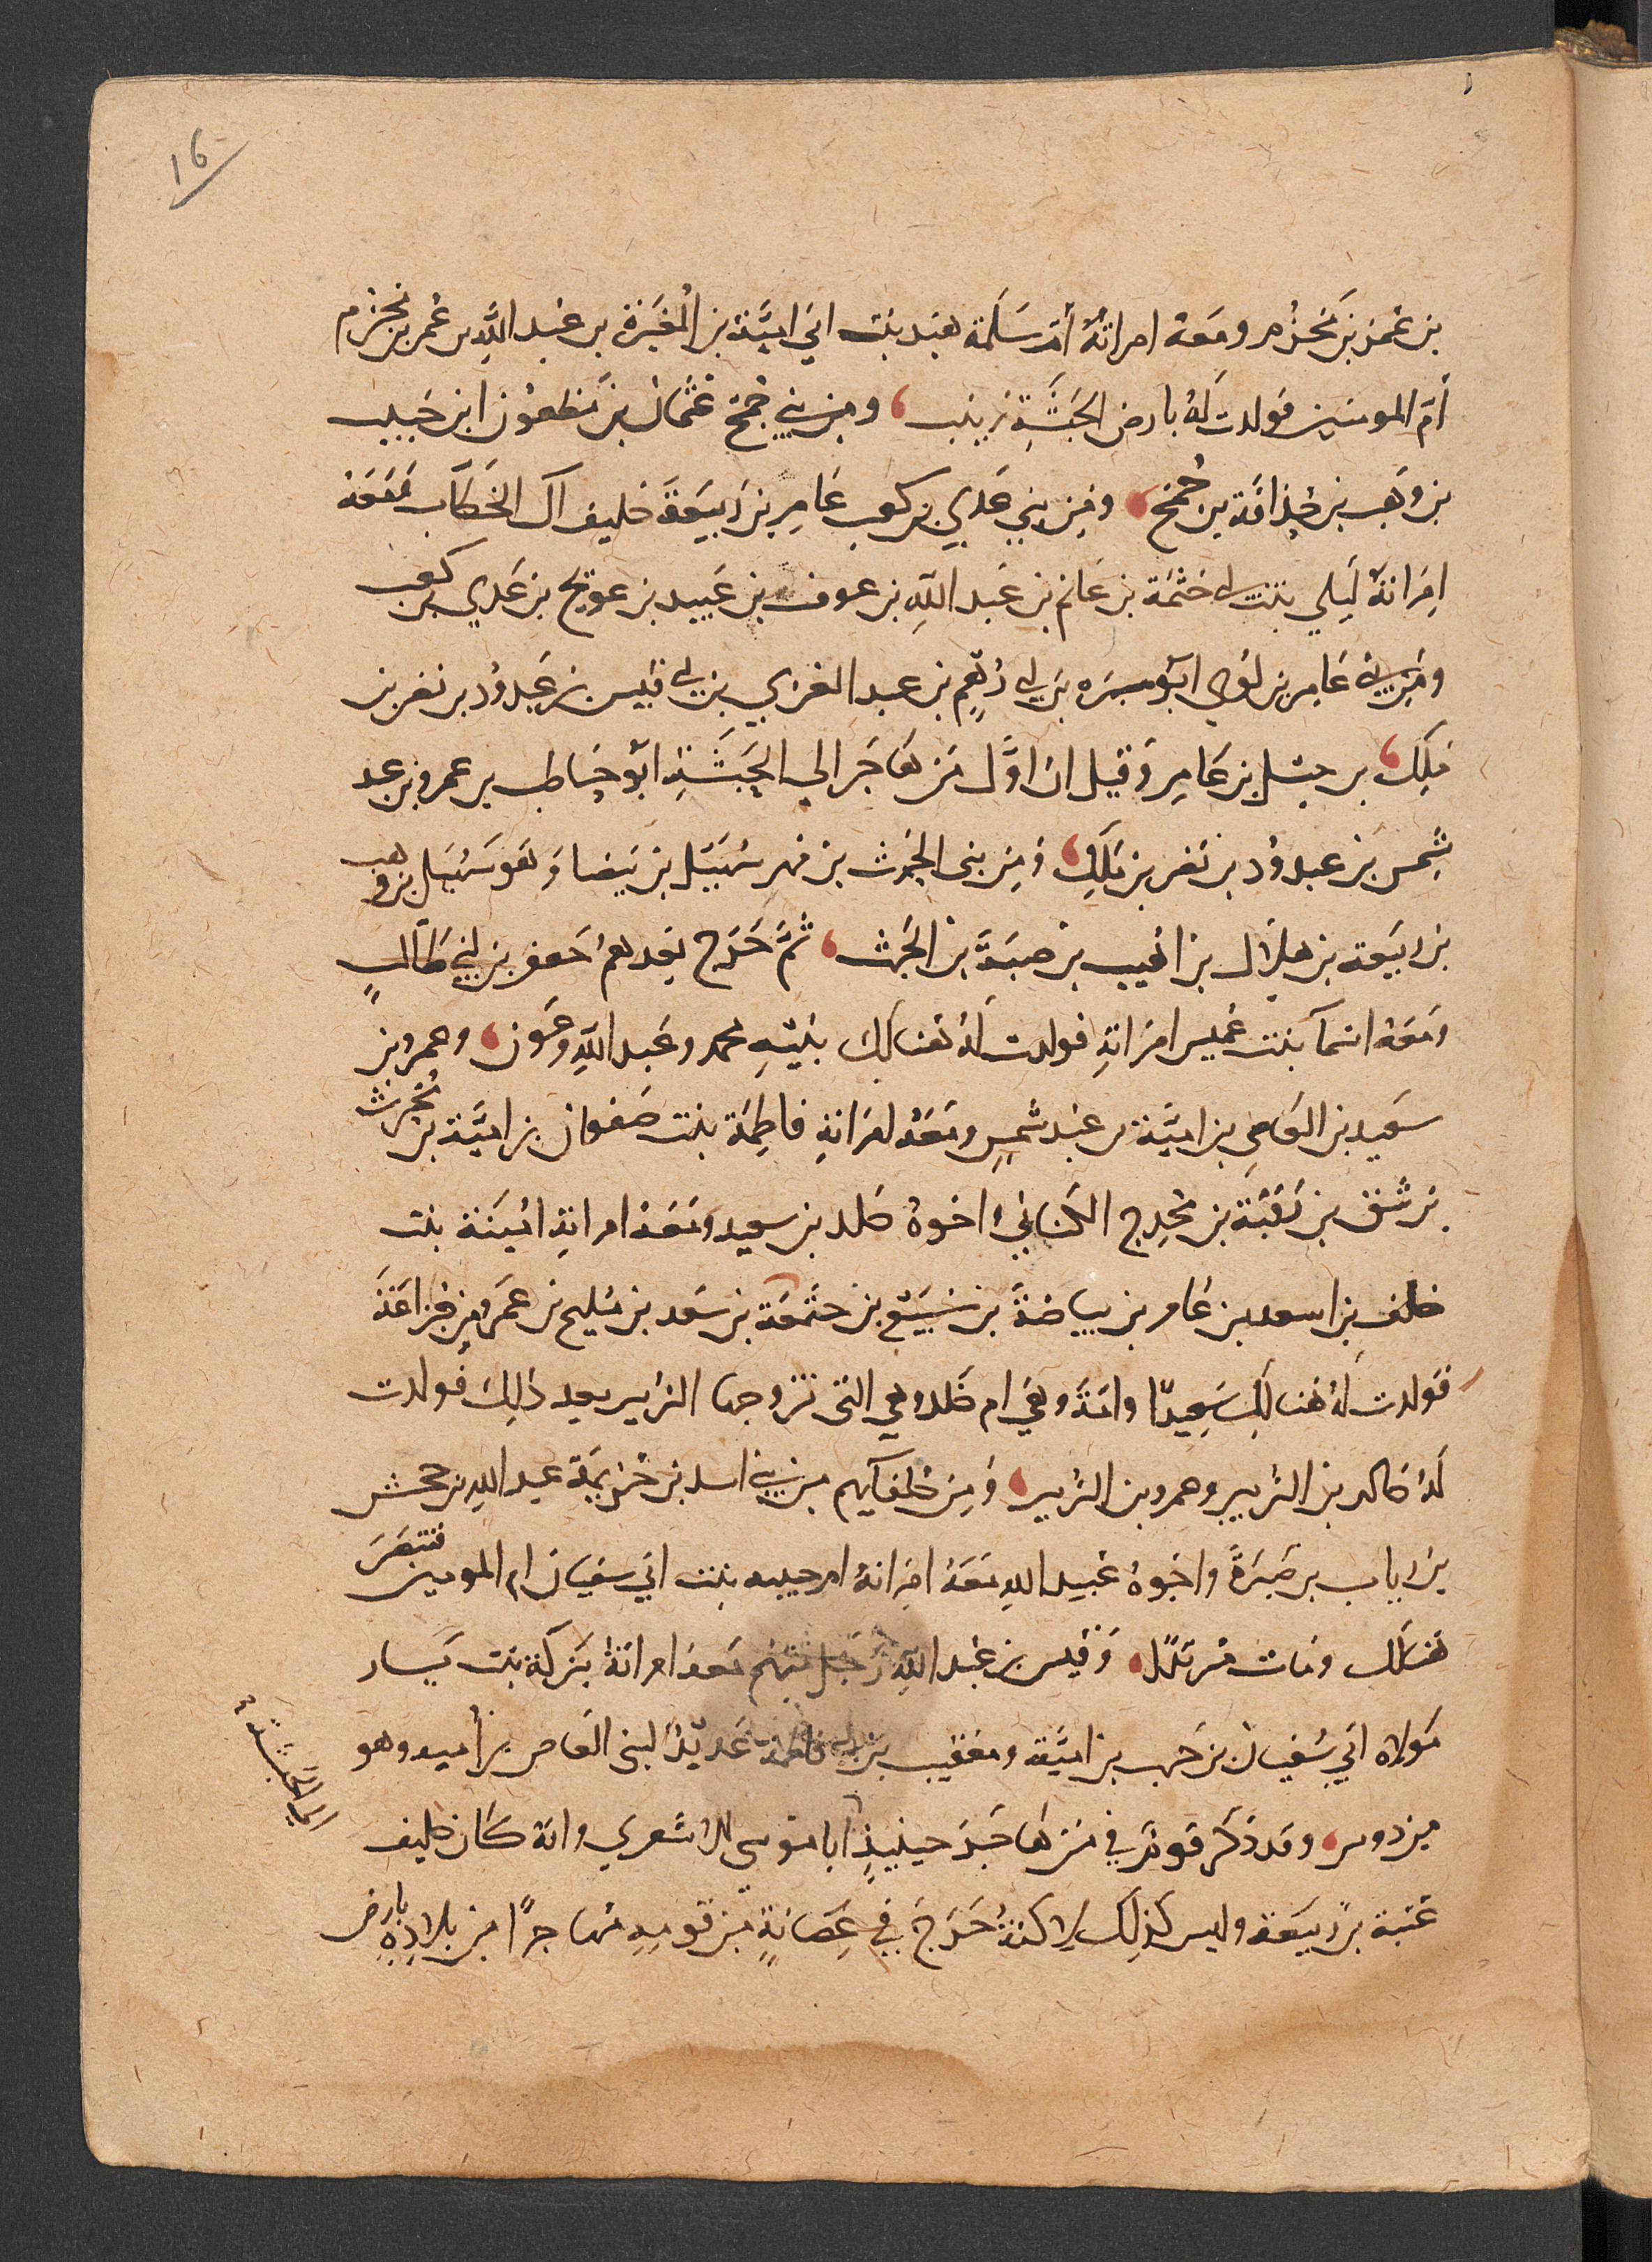 16
بن عُمر بن مَخزُم ومَعَهُ امراتُهُ أمّ سَلَمة هند بنت ابي اميَّة بن المُغيَرة بن عَبد اللَّهِ بن عُمر بن مخزم
أمّ المومنين فَولدت لهُ بارض الحَبَشَةِ زينب ، ومن بني جُمَح عُثمان بن مَظعون ابن حَبيب
بن وَهب بن حُذافَة بن جُمَح ، ومِن بني عَدي بن كعب عَامِر بن رَبيعَة حليف آل الخَطَّاب مَعَهُ
امرَاتهُ لَيلي بنت ابي حَثمَة بن غانم بن عَبد اللَّهِ بن عوف بن عَبيد بن عويج بن عَدي بن كعب
ومن بني عَامِر بن لُوي ابو سبرَه بن ابي رُهم بن عبد العزي بن ابي قيس بن عَبدوُد بن نصر بن
مَلِك ، بن حِسْل بن عَامِر وَقيل ان اوَّل من هَاجَر الي الحَبَشَةِ ابو حَاطب بن عمرو بن عبد
شَمس بن عبدوُد بن نصر بن مَلِك ، وَمِن بني الحَرث بن فهر سُهَيل بن بَيضا وَهو سُهَيل بن وهب
بن رَبيعَة بن هِلَال بن اهيب بن ضبَةَ بن الحَرث ، ثمَّ خَرَج بَعدهمُ جَعفر بن ابي طَالبٍ
ومَعَهُ اسمآ بنت عُميس امرَاتهِ فولدت لهُ هُنالك بَنيهِ محمد وعَبد اللَّهِ وعَون ، وعمرو بن
سَعيد بن العَاصِ بن اميَّة بن عَبد شمسٍ ومَعَهُ امرَاتهِ فاطِمَة بنت صَفوان بن اميَّة بن محرث
بن شق بن رَقَبَة بن مُخدِج الكناني واخوهُ خَلد بن سعيد ومَعَهُ امراتهِ امينَة بنت
خلف بن اسعد بن عَامر بن بياضَةَ بن سُبَيْع بن جثَعمَة بن سَعد بن مُليح بن عَمرو من خزاعَةَ
فَولدت لهُ هُنالك سَعِيدًا وامَةَ وهَي ام خَلد وهي التي تزوجها الزبير بعد ذلِك فولدت
لهُ خالد بن الزبير وعمرو بن الزبير ، وَمِن حُلفَايهم من بني اسد بن خزيمَة عبد اللهِ بن جحش
بن رياب بن صَبَرَةَ واخوهُ عُبيد اللهِ مَعَهُ امرَاتهُ ام حبيبه بنت ابي سفيان ام المومنين فتنَصَرَ
هُنالك ومَات مُرتَدًا ، وَقيس بن عَبد اللَّهِ رَجل منهم مَعهُ امراتهُ بَركَة بنت يَسار
مَولاه ابي سُفيان بن حَرب بن اميَّة ومعَيقيب بن ابي فاطمة عَديدًا لبني العَاص بن أميه وهو
من دوس ، وقد ذكَرَ قومُ في مَن هَاجَرَ حينيذٍ ابا موسى الاشعري وانهُ كان حليف
عُتبة بن رَبيعَة وليس كذلِك لاكنهُ خَرَجَ في عِصَابَةٍ مِن قومِهِ مُهاجرًا من بلادِهِ بارض